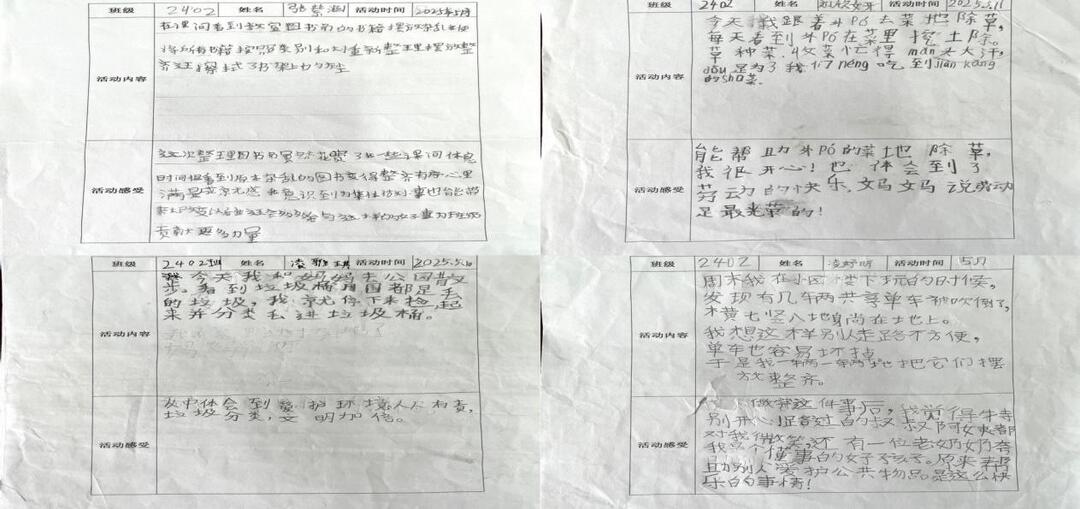 班级 2402 姓名 活动时间 2025年5月
在课间看到教室图书角的书籍摆放杂乱便
将所有书籍按照类别和大重新整理摆放整
齐还擦拭了书架上的
活动内容
这次整理图书角虽然花费了一些课间休息
时间但看到原本杂乱的图书变得整齐有序心里
满是成就感 意识到为集体
活动感受
贡献更多力量
班级 2402 姓名 活动时间 2025.5.11
今天,我跟着外Pó去菜地除草,
每天看到外Pó在菜里挖土除。
草种菜. 忙得mǎn头大汗,
dōu是为了我们néng吃到jiàn kāng
的shū菜.
活动内容
能帮助外Pó的菜地除草,
我很开心!也体会到了
劳动的快乐,妈妈说劳动
是最光荣的!
活动感受
班级 2402班 姓名 活动时间 2025.5.
今天我和妈妈去公园散
步。看到垃圾桶周围都是丢
的垃圾,我就停下来捡起
来并分类丢进垃圾桶。
活动内容
从中体会到爱护环境人人有责,
垃圾分类,文明加倍。
活动感受
班级 2402 姓名 活动时间 5月
周末我在小区楼下玩的时候,
发现有几车两共享单车被吹倒了,
横七竖八地身尚在地上。
我想这样别人走路不方便,
单车也容易坏掉
于是我一辆一辆地把它们摆
放整齐。
活动内容
做完这件事后,我觉得特
别开心 过的叔叔阿姨都
对我微笑,还有一位老奶奶夸
我 个懂事的好孩子。原来帮
助别人爱护公共物品是这么快
乐的事情!
活动感受